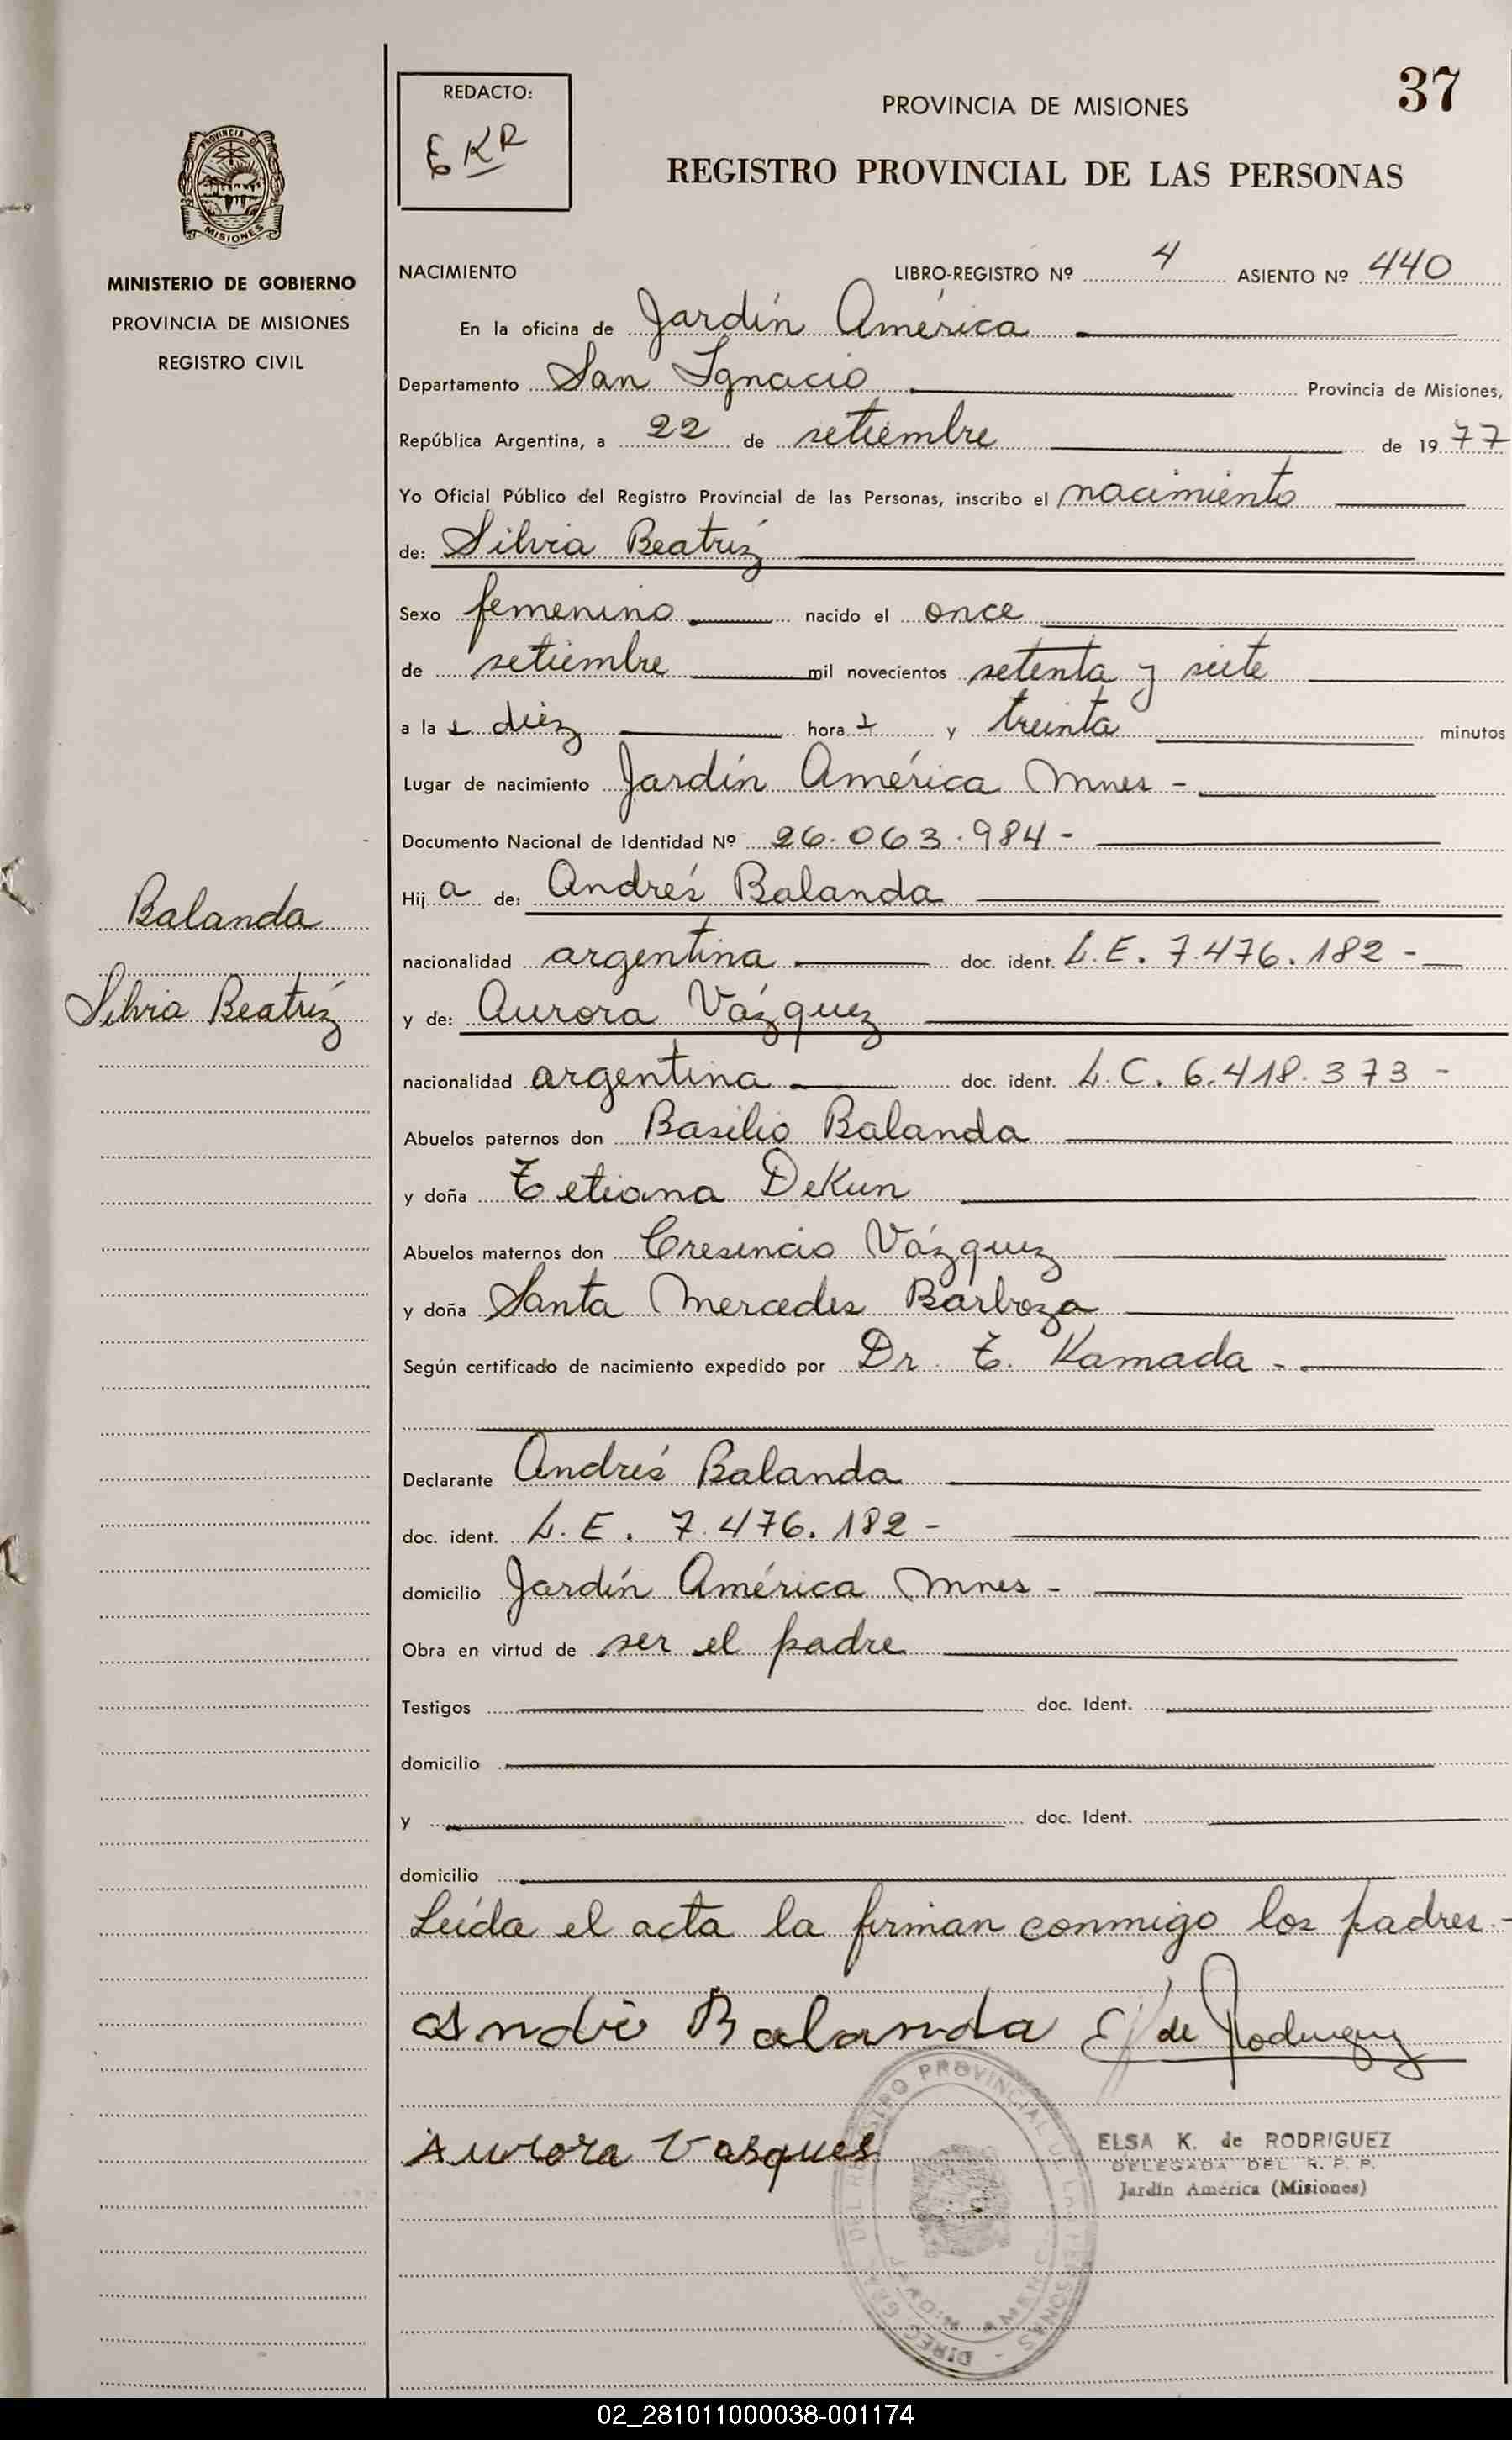 37
REDACTO:
EKR
PROVINCIA DE MISIONES
REGISTRO PROVINCIAL DE LAS PERSONAS
PROVINCIA D
MISIONES
MINISTERIO DE GOBIERNO
PROVINCIA DE MISIONES
REGISTRO CIVIL
NACIMIENTO LIBRO-REGISTRO Nº 4 ASIENTO Nº 440
En la oficina de Jardín América
Departamento San Ignacio Provincia de Misiones,
República Argentina, a 22 de setiembre de 1977
Yo Oficial Público del Registro Provincial de las Personas, inscribo el nacimiento
de: Silvia Beatríz
Sexo femenino nacido el once
de setiembre mil novecientos setenta y siete
a la s diez hora s y treinta minutos
Lugar de nacimiento Jardín América Mnes -
Documento Nacional de Identidad Nº 26.063.984 -
Hij a de: Andrés Balanda
nacionalidad argentina doc. ident. L.E. 7.476.182 -
y de: Aurora Vázquez
nacionalidad argentina doc. ident. L.C. 6.418.373 -
Abuelos paternos don Basilio Balanda
y doña Tetiana DeKun
Abuelos maternos don Cresencio Vázquez
y doña Santa Mercedes Barboza
Según certificado de nacimiento expedido por Dr. T. Kamada -
Declarante Andrés Balanda
doc. ident. L.E. 7.476.182 -
domicilio Jardín América Mnes -
Obra en virtud de ser el padre
Testigos doc. Ident.
domicilio
y doc. Ident.
domicilio
Leída el acta la firman conmigo los padres.-
Balanda
Silvia Beatríz
Andrés Balanda E de Rodriguez
Aurora Vasques
DIREC. GRAL. DEL REGISTRO PROVINCIAL DE LAS PERSONAS -
JARDIN AMERICA
ELSA K. de RODRIGUEZ
DELEGADA DEL R. P. P.
Jardín América (Misiones)
02_281011000038-001174